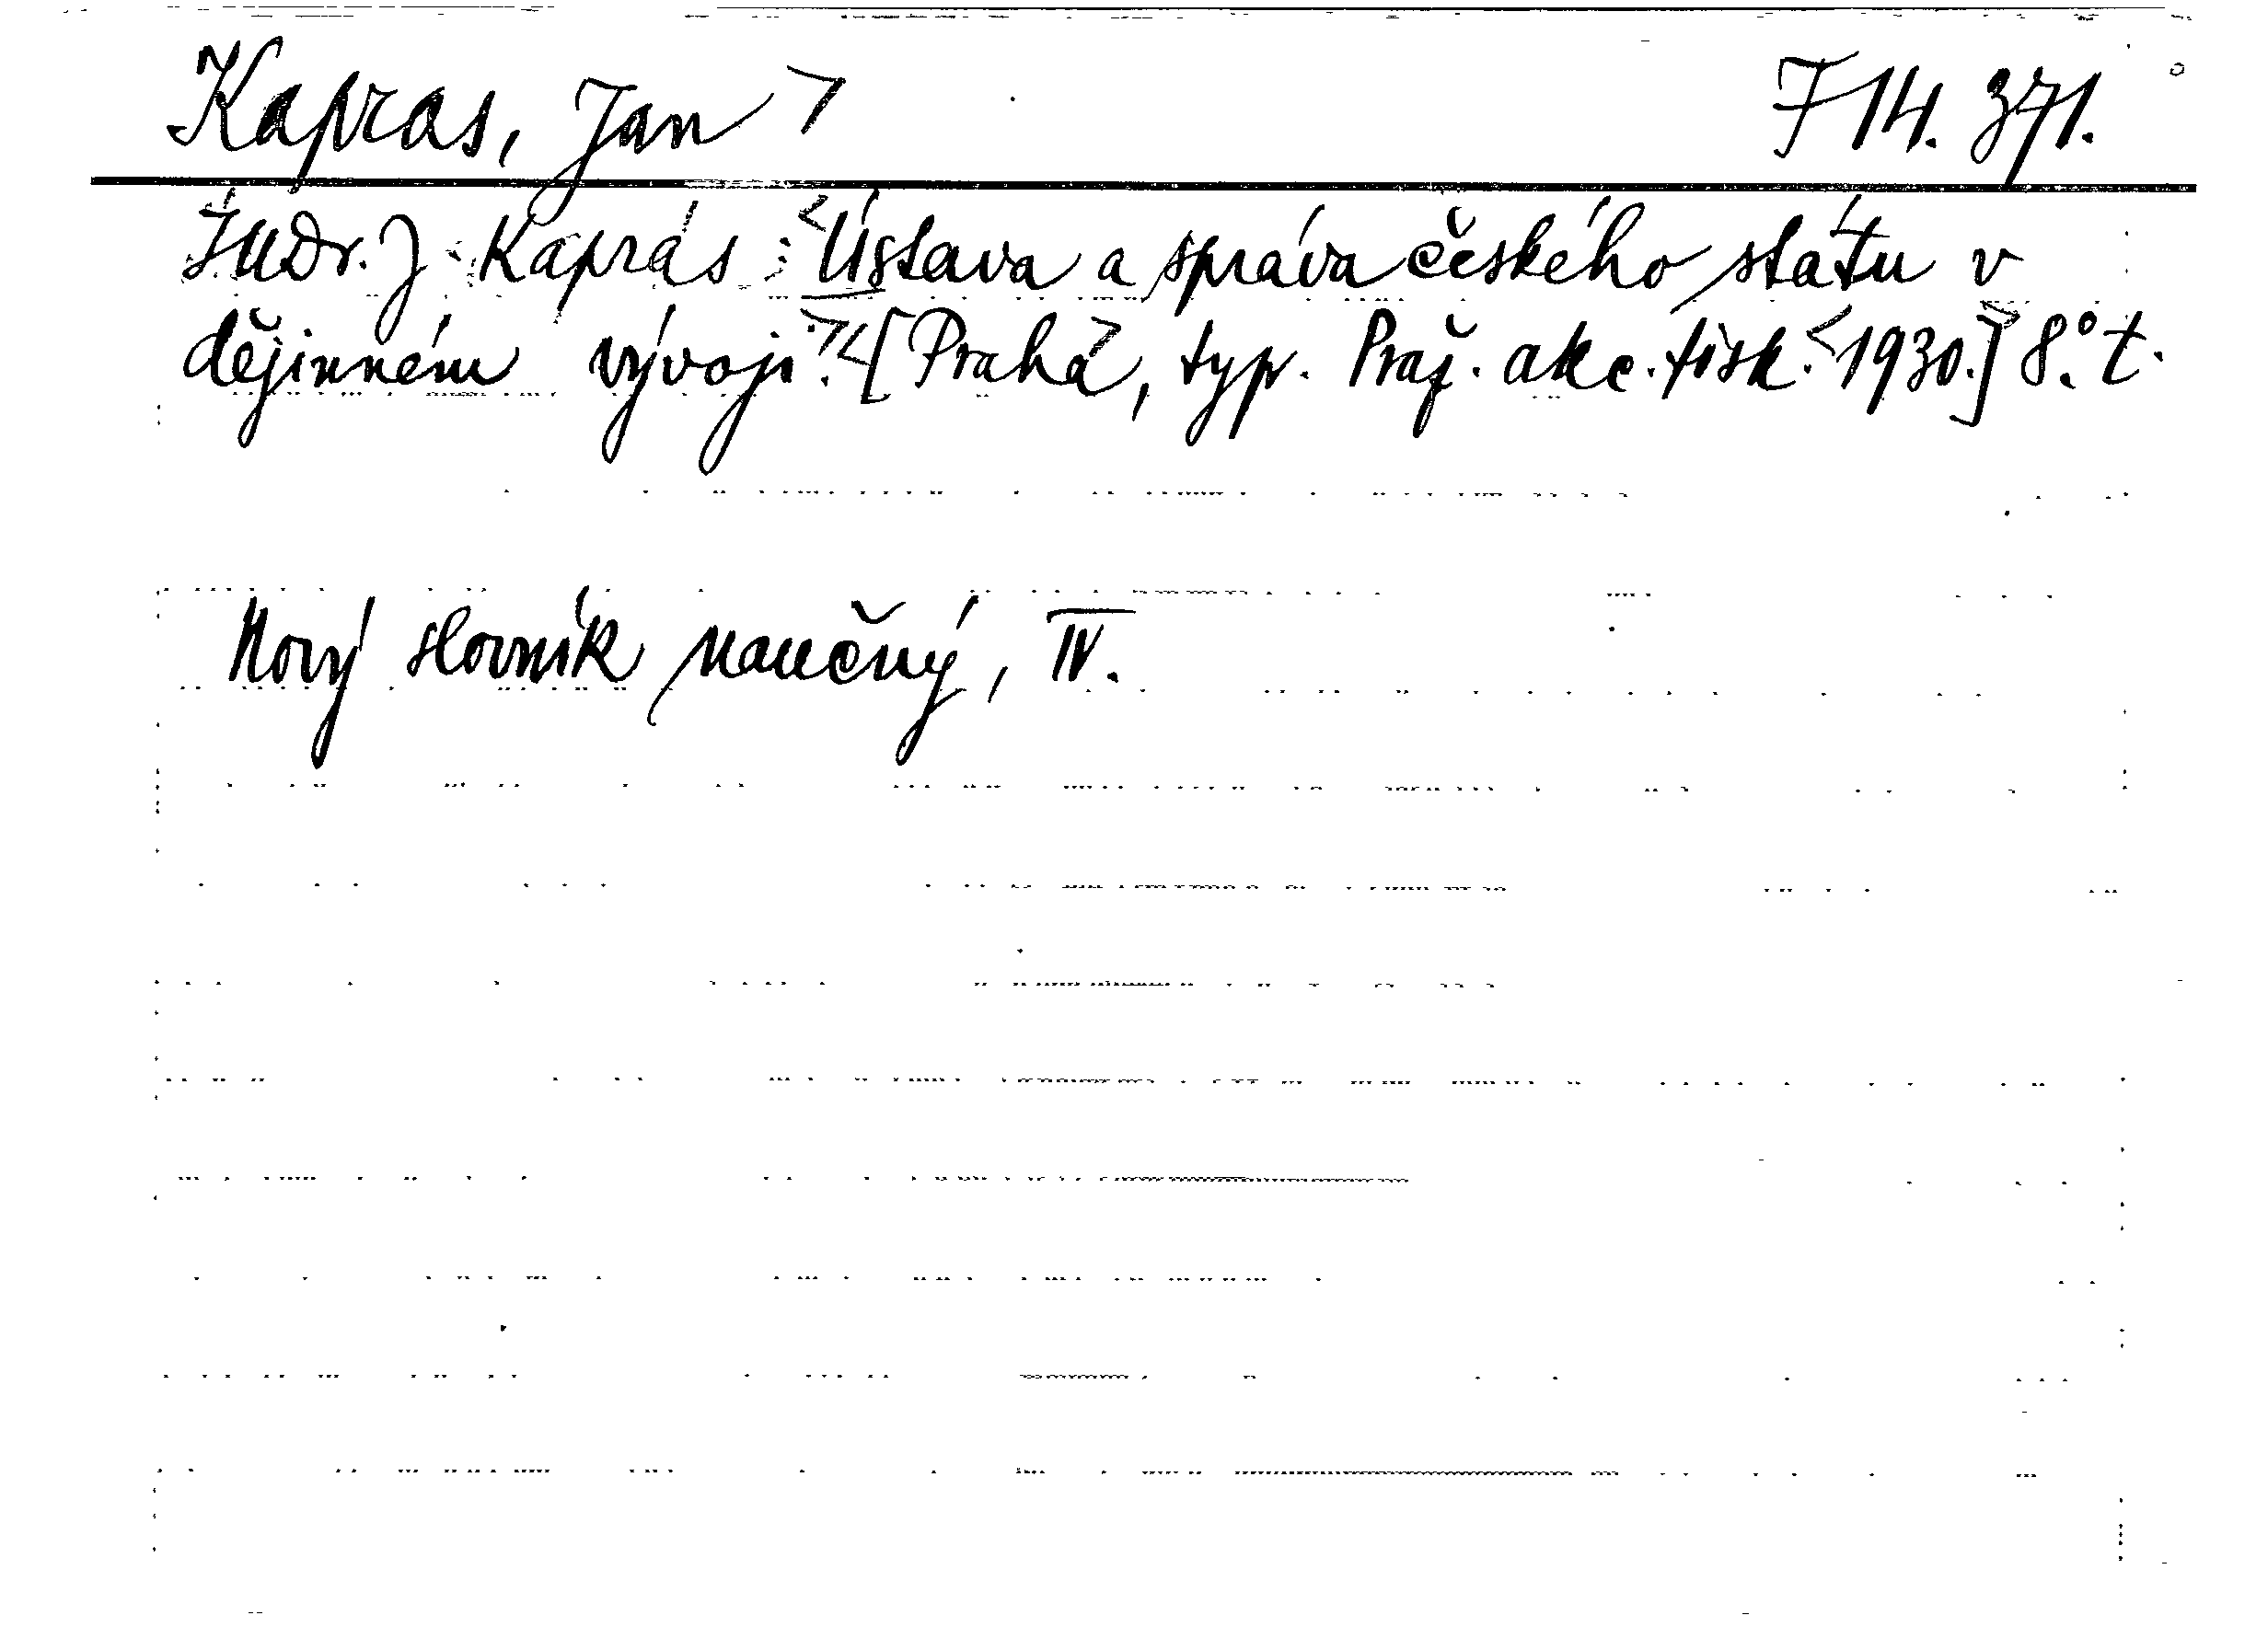 Kapras, Jan
F 14. 371.
JUDr. J. Kapras: Ústava a správa českého státu v
dějinném vývoji. [Praha, typ. Praž. akc. tisk. 1930.] 8.° t.
Nový slovník naučný, IV.